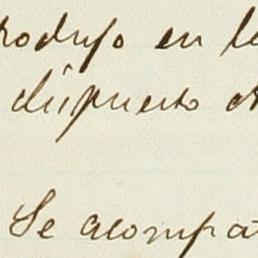 rodujo en la
dispuesto d
Se acompañ